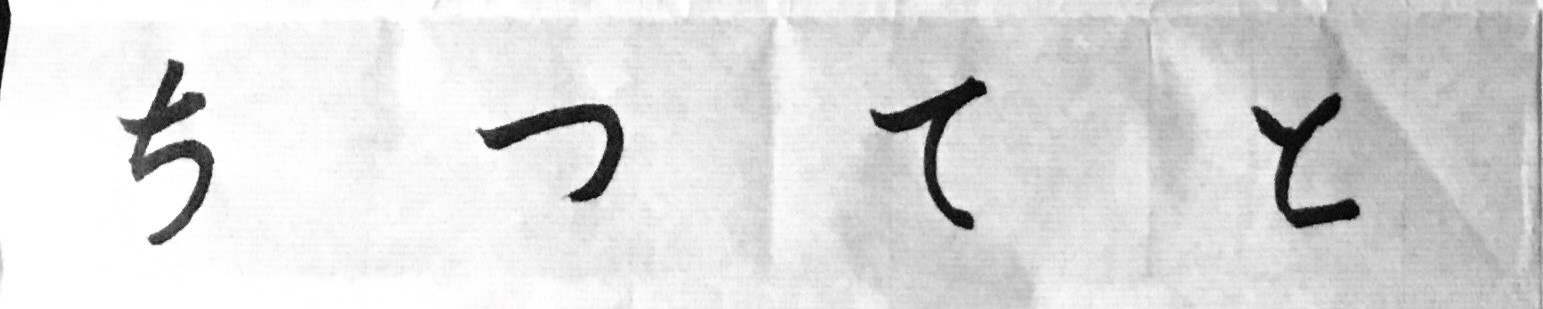 ちつてと